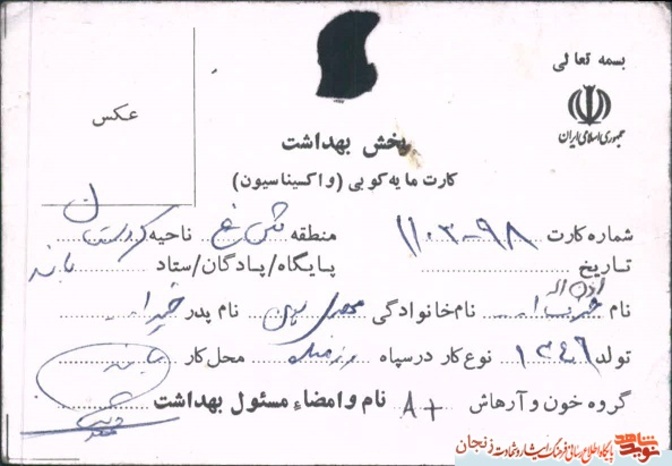 بسمه تعالی
جمهوری اسلامی ایران
عکس
بخش بهداشت
کارت مایه کوبی (واکسیناسیون)
شماره کارت ۱۱۰۳-۹۸ منطقه ناحیه کردستان
تاریخ پایگاه/پادگان/ستاد بانه
نام نام خانوادگی نام پدر
تولد ۱۳۴۶ نوع کار در سپاه رزمنده محل کار بانه
گروه خون و آرهاش A+ نام و امضاء مسئول بهداشت
نوید شاهد پایگاه اطلاع رسانی فرهنگ ایثار و شهادت زنجان